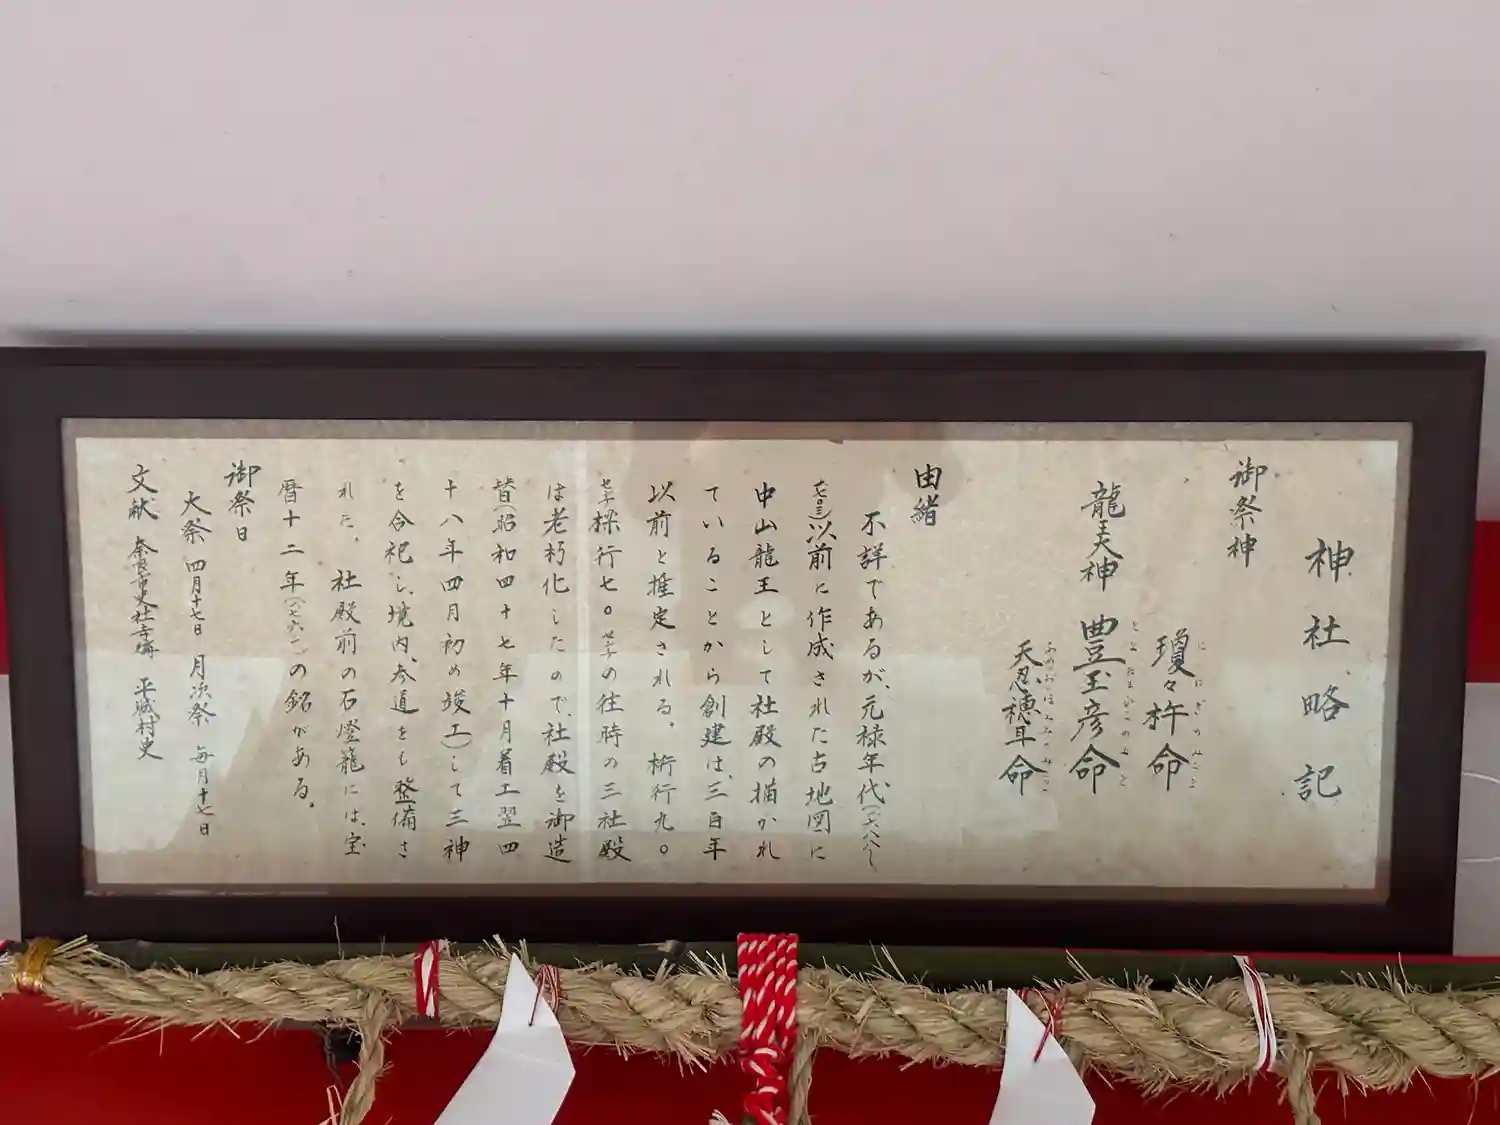 神社略記
御祭神
瓊々杵命
ににぎのみこと
龍王天神 豊玉彦命
とよたまひこのみこと
天忍穂耳命
あめのおしほみみのみこと
由緒
不詳であるが、元禄年代(一六八八〜
一七〇三)以前に作成された古地図に
中山龍王として社殿の描かれ
ていることから創建は、三百年
以前と推定される。 桁行九〇
センチ梁行七〇センチの往時の三社殿
は老朽化したので、社殿を御造
替(昭和四十七年十月着工翌四
十八年四月初め竣工)して三神
を合祀し、境内、参道をも整備さ
れた。 社殿前の石燈籠には、宝
暦十二年(一七六二)の銘がある。
御祭日
大祭 四月十七日 月次祭 毎月十七日
文献 奈良市史社寺編 平城村史